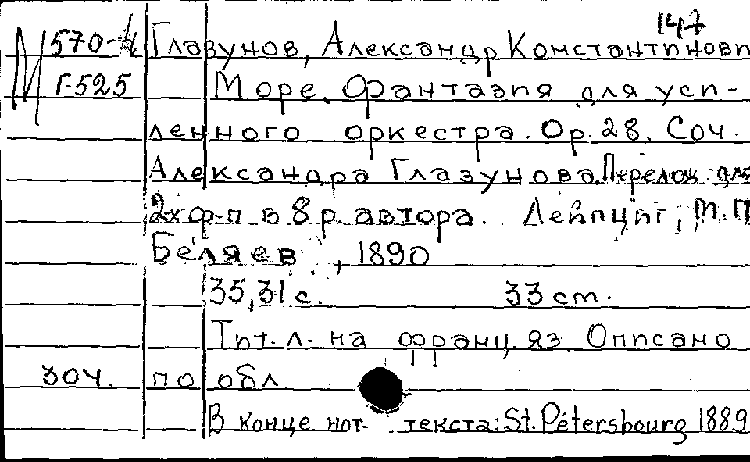 147
М 570-4 Глазунов, Александр Константинови
Г-525 Море. Фантазия для уси-
ленного оркестра. Op. 28. Соч.
Александра Глазунова. Перелож. для
2х ф-п в 8 р. автора. Лейпциг, М.П.
Беляев, 1890
35, 31 с. 33 cm.
Тит. л. на франц. яз. Описано
304. по обл
В конце нот. текста: St. Pétersbourg 1889